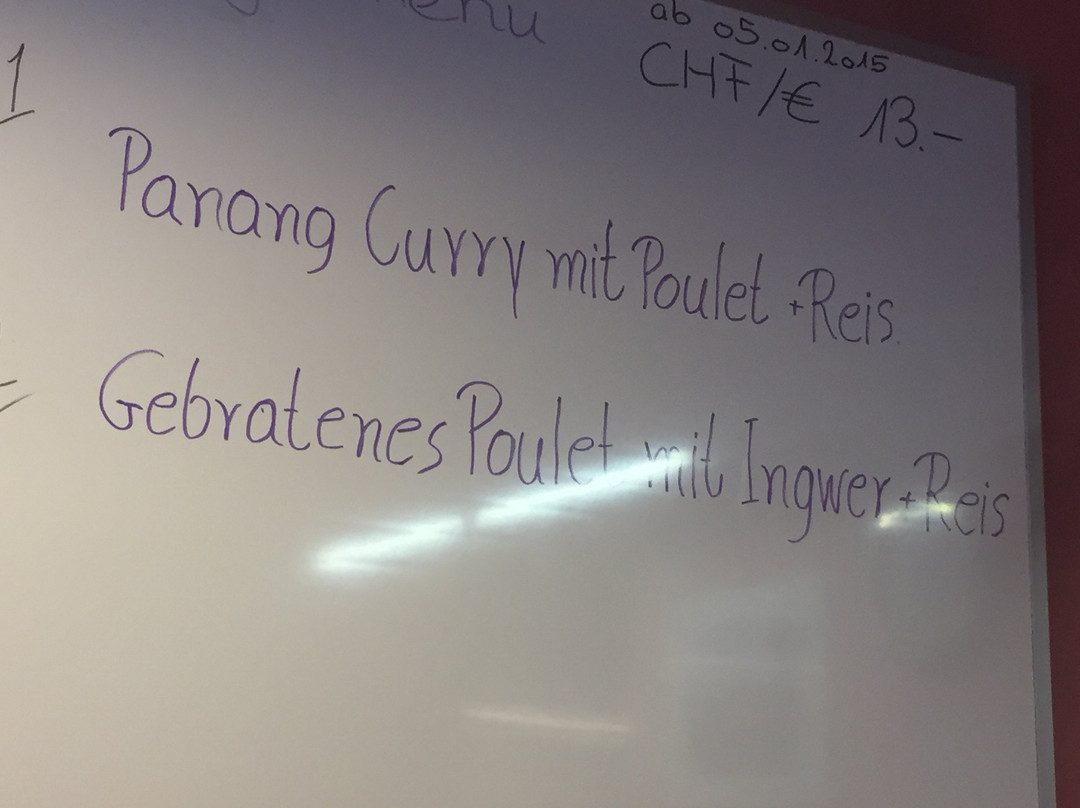 ab 05.01.2015
CHF/€ 13.-
1
Panang Curry mit Poulet + Reis
Gebratenes Poulet mit Ingwer + Reis